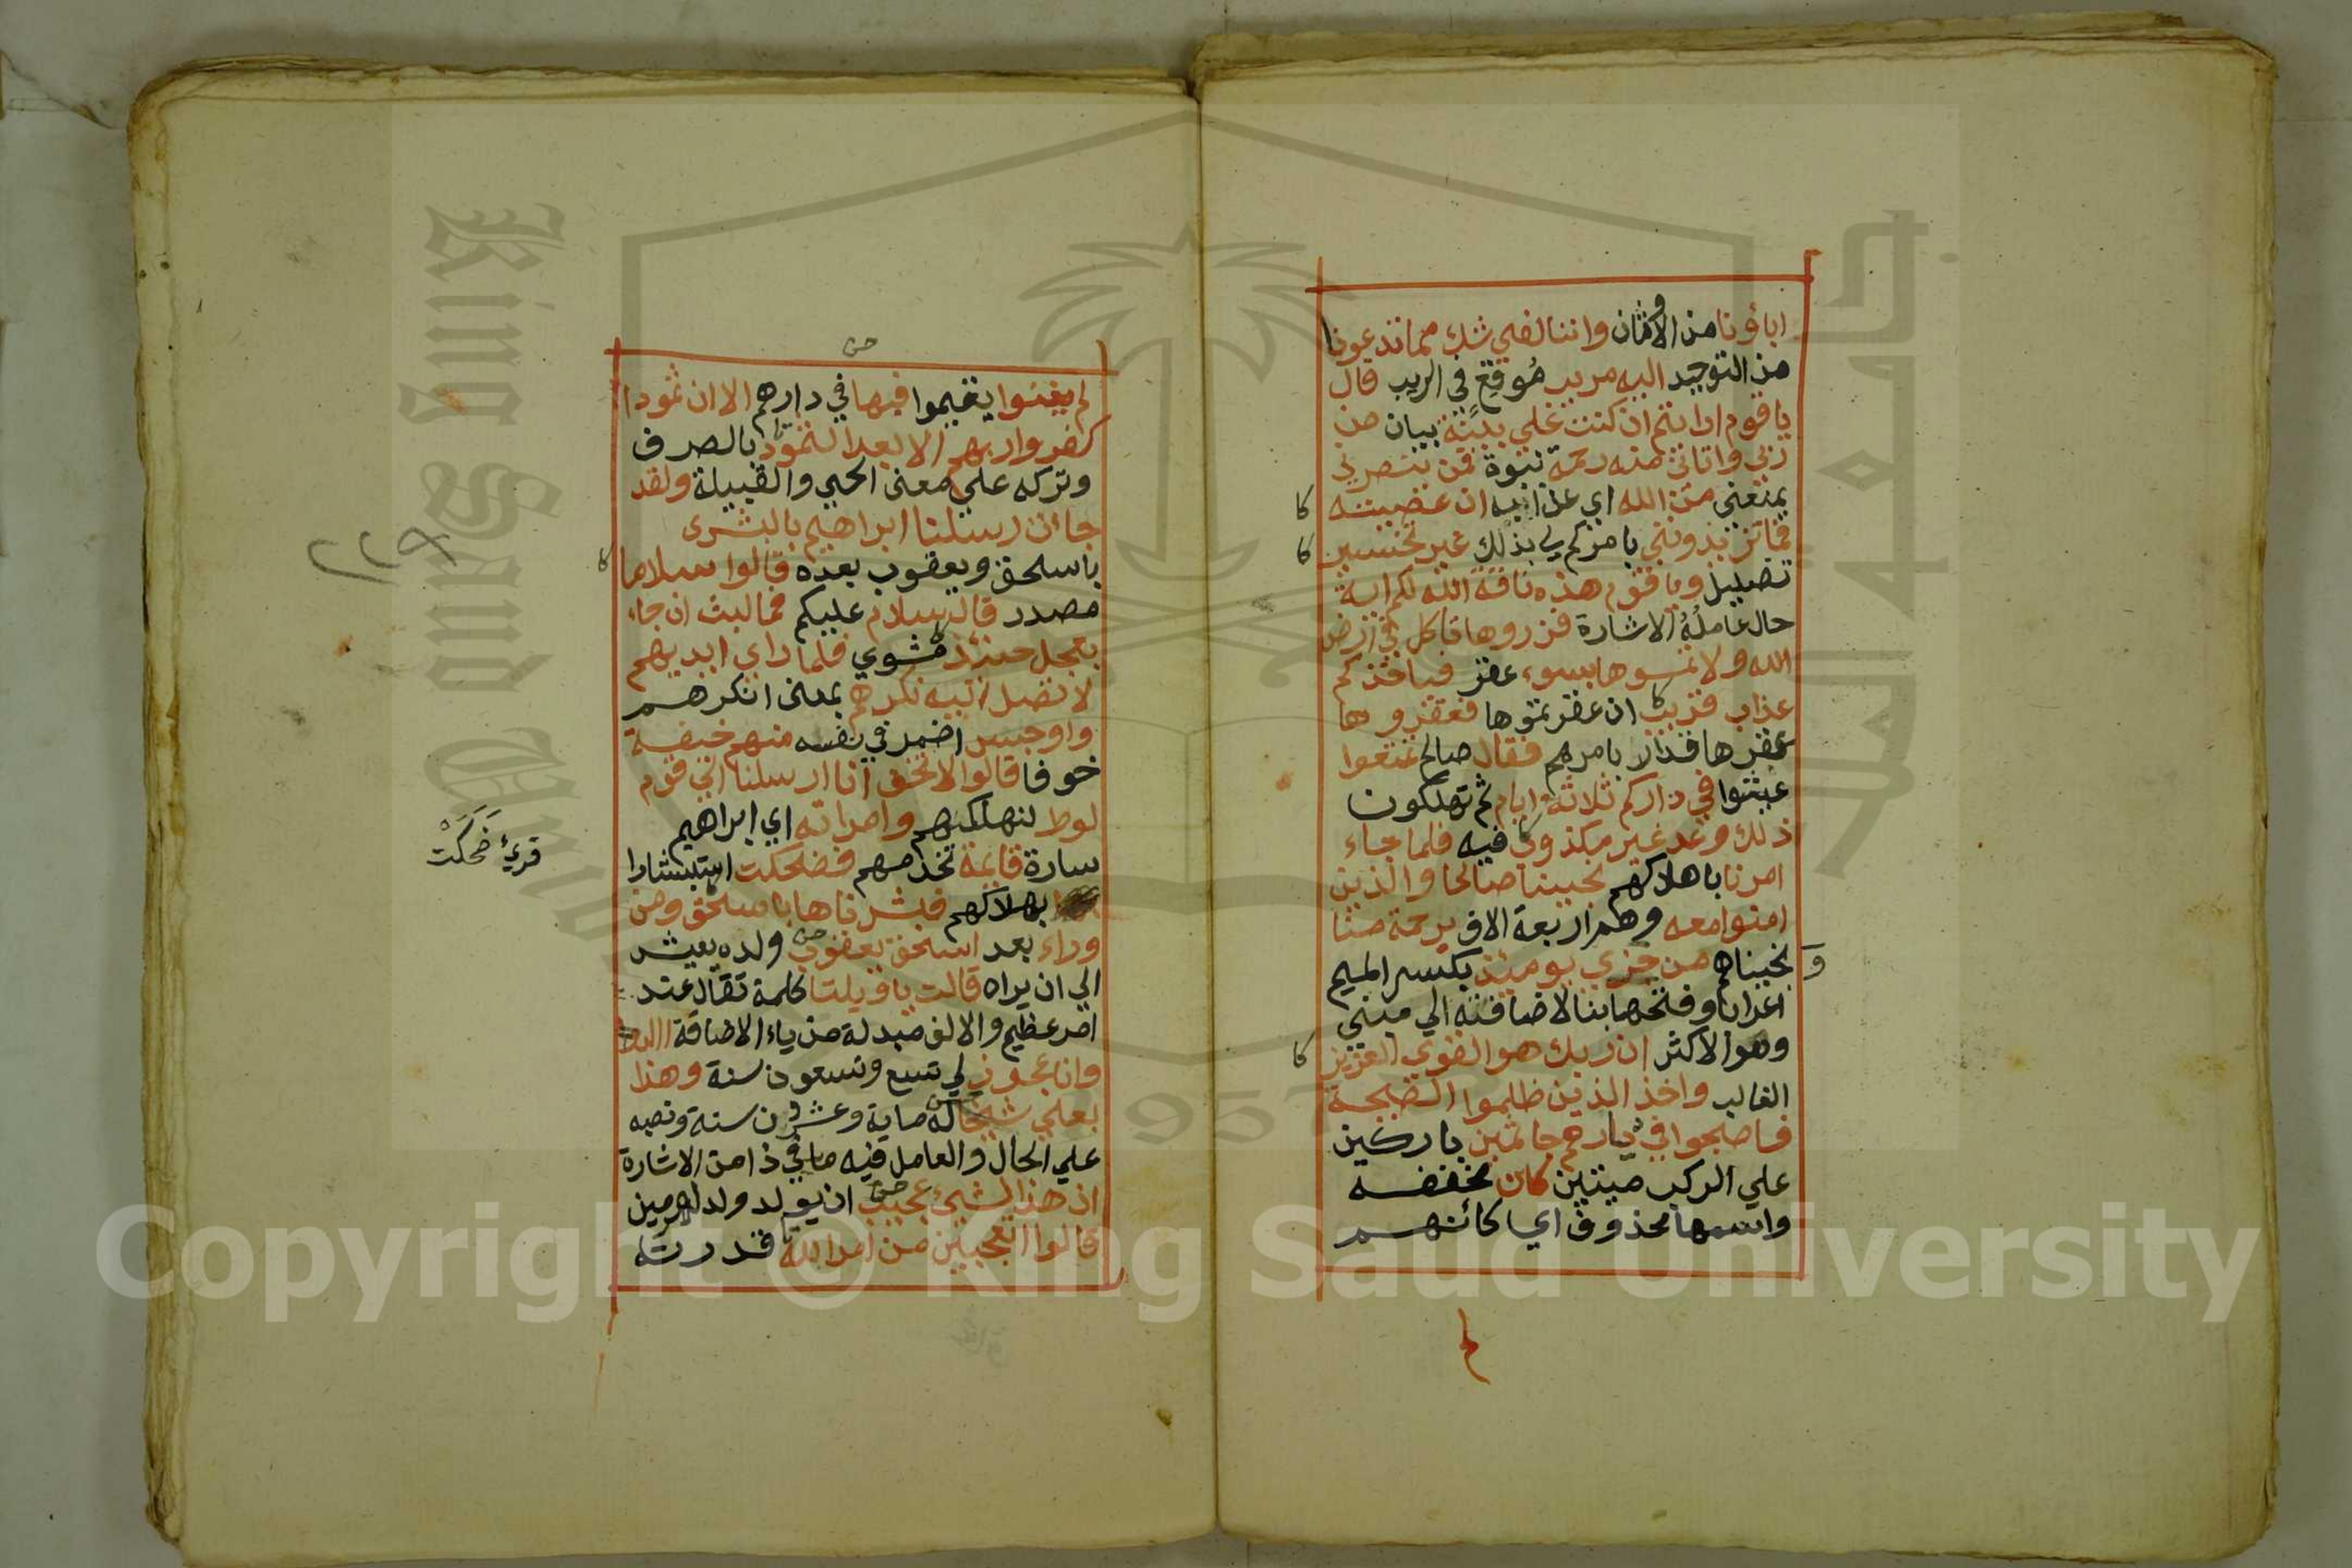 اباؤنا من الاوثان واننا لفي شك مما تدعونا
من التوحيد اليه مريب مُوقِع في الريب قال
يا قوم ارايتم ان كنت علي بينة بيان من
ربي واتاني منه رحمة نبوة فمن ينصرني
يمنعني من الله اي عذابه ان عصيته
فما تزيدونني بامركم لي بذلك غير تخسير
تضليل ويا قوم هذه ناقة الله لكم اية
حال عامله الاشارة فذروها تاكل في ارض
الله ولا تمسوها بسوء عقر فياخذكم
عذاب قريب ان عقرتموها فعقروها
عقرها قدار بامرهم فقال صالح تمتعوا
عيشوا في داركم ثلاثة ايام ثم تهلكون
ذلك وعد غير مكذوب فيه فلما جاء
امرنا باهلاكهم نجينا صالحا والذين
امنوا معه وهم اربعة الاف برحمة منا
و نجيناهم من خزي يومئذ بكسر الميم
اعرابا وفتحها بنا لاضافته الي مبني
وهو الاكثر ان ربك هو القوي العزيز
الغالب واخذ الذين ظلموا الصيحة
فاصبحوا في ديارهم جاثمين باركين
علي الركب ميتين كان مخففه
واسمها محذوف اي كانهم
لم
لم يغنوا يقيموا فيها في دارهم الا ان ثمودا
كفروا ربهم الا بعدا لثمود بالصرف
وتركه علي معنى الحي والقبيلة ولقد
جاءت رسلنا ابراهيم بالبشرى
باسحق ويعقوب بعده قالوا سلاما
مصدر قال سلام عليكم فما لبث ان جاء
بعجل حنيذ مشوي فلما راي ايديهم
لا تصل اليه نكرهم بمعنى انكرهم
واوجس اضمر في نفسه منهم خيفة
خوفا قالوا لا تخف انا ارسلنا الي قوم
لوط لنهلكهم وامراته اي ابراهيم
سارة قايمة تخدمهم فضحكت استبشارا
بهلاكهم فبشرناها باسحق ومن
وراء بعد اسحق يعقوب ولده يعيش
الي ان يراه قالت يا ويلتا كلمة تقال عند
امر عظيم والالف مبدلة من ياء الاضافة االد
وانا عجوز لي تسع وتسعون سنة وهذا
بعلي شيخا له ماية وعشرون سنة ونصبه
علي الحال والعامل فيه ما في ذا من الاشارة
ان هذا لشيئ عجيب ان يولد ولد لهرمين
قالوا اتعجبين من امر الله قدرته
قرئ ضَحَكَتْ
٢٢٩
King Saud Univ
1957
جامعة الملك
Copyright © King Saud University